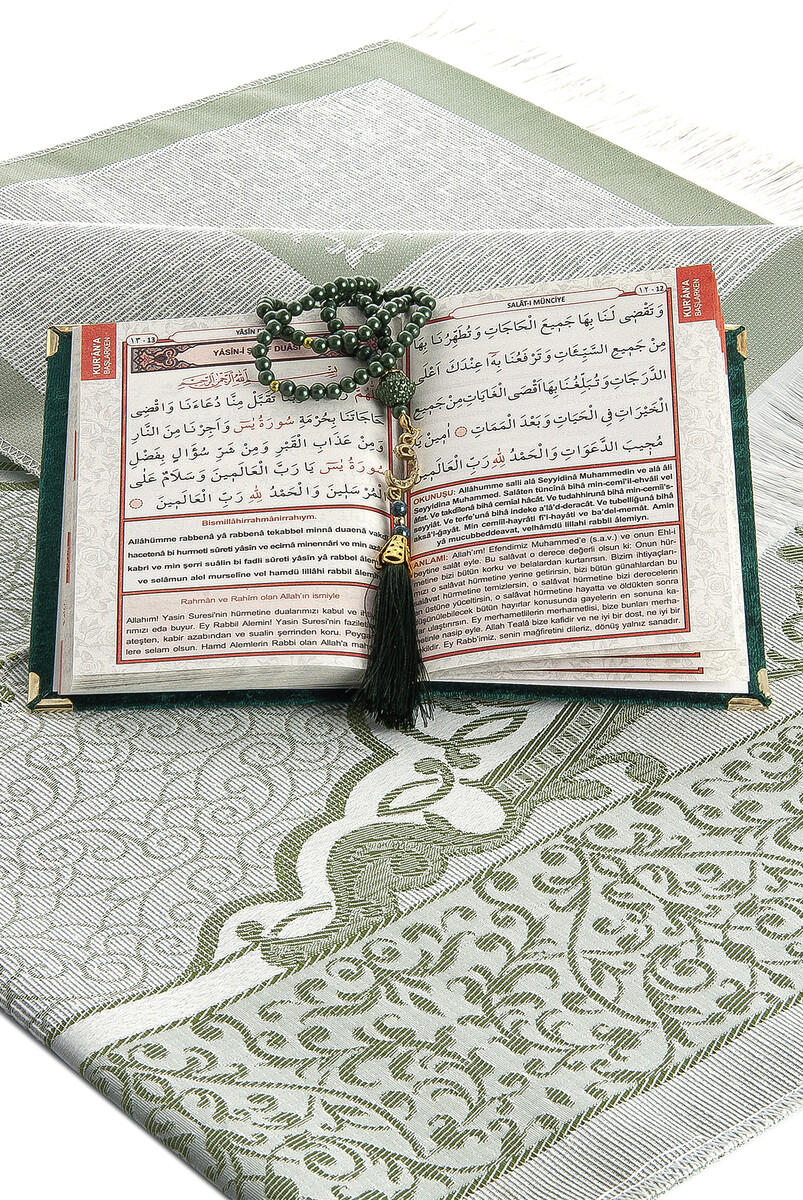 KUR'ÂN'A
BAŞLARKEN
١٣ - 13
YÂSİN-İ
DUÂSI
تَقَبَّلْ مِنَّا دُعَاءَنَا وَاقْضِ
حَاجَاتَنَا بِحُرْمَةِ سُورَةِ يٰسٓ وَاَجِرْنَا مِنَ النَّارِ
وَمِنْ عَذَابِ الْقَبْرِ وَمِنْ شَرِّ سُؤَالٍ بِفَضْلِ
سُورَةِ يٰسٓ يَا رَبَّ الْعَالَمِينَ وَسَلَامٌ عَلَى
الْمُرْسَلِينَ وَالْحَمْدُ لِلّٰهِ رَبِّ الْعَالَمِينَ
Bismillâhirrahmânirrahıym.
Allâhümme rabbenâ yâ rabbenâ tekabbel minnâ duaenâ vakdi
hacetenâ bi hurmeti sûreti yâsîn ve ecirnâ minennâri ve min azâ
kabri ve min şerri suâlin bi fadli sûreti yâsîn yâ rabbil âlem
ve selâmun alel murselîne vel hamdü lillâhi rabbil âlem
Rahmân ve Rahîm olan Allah'ın ismiyle
Allahım! Yasin Suresi'nin hürmetine dualarımızı kabul ve ih
rımızı eda buyur. Ey Rabbil Alemin! Yasin Suresi'nin fazilet
ateşten, kabir azabından ve sualin şerrinden koru. Peyga
lere selam olsun. Hamd Alemlerin Rabbi olan Allah'a mah
SALÂT-I MÜNCİYE
١٢ - 12
KUR'ÂN'A
BAŞLARKEN
وَتَقْضٖى لَنَا بِهَا جَمٖيعَ الْحَاجَاتِ وَتُطَهِّرُنَا بِهَا
مِنْ جَمٖيعِ السَّيِّئَاتِ وَتَرْفَعُنَا بِهَٓا عِنْدَكَ اَعْلَى
الدَّرَجَاتِ وَتُبَلِّغُنَا بِهَا اَقْصَى الْغَايَاتِ مِنْ جَمٖيعِ
الْخَيْرَاتِ فِى الْحَيَاتِ وَبَعْدَ الْمَمَاتِ اٰمٖينَ
مُجٖيبَ الدَّعَوَاتِ وَالْحَمْدُ لِلّٰهِ رَبِّ الْعَالَمٖينَ
OKUNUŞU: Allâhumme salli alâ Seyyidinâ Muhammedin ve alâ âli
Seyyidinâ Muhammed. Salâten tüncînâ bihâ min-cemî'il-ehvâli vel
âfat. Ve takdîlenâ bihâ cemîal hâcât. Ve tudahhirunâ bihâ min-cemîi's-
seyyiât. Ve terfe'unâ bihâ indeke a'lâ'd-deracât. Ve tubelliğunâ bihâ
aksâ'l-ğayât. Min cemiîl-hayrâti fi'l-hayâti ve ba'del-memât. Amin
yâ mucubbeddeavat, velhâmdü lillahi rabbil âlemiyn.
ANLAMI: Allah'ım! Efendimiz Muhammed'e (s.a.v.) ve onun Ehl-i
beytine salât eyle. Bu salâvat o derece değerli olsun ki: Onun hür-
metine bizi bütün korku ve belalardan kurtarırsın. Bizim ihtiyaçları-
o salâvat hürmetine yerine getirsin, bizi bütün günahlardan bu
salâvat hürmetine temizlersin, o salâvat hürmetine bizi derecelerin
üstüne yüceltirsin, o salâvat hürmetine hayatta ve öldükten sonra
düşünülebilecek bütün hayırlar konusunda gayelerin en sonuna ka-
ulaştırırsın. Ey merhametlilerin merhametlisi, bize bunları merha-
nasip eyle. Allah Teala bize kafidir ve ne iyi bir dost, ne iyi bir
vekildir. Ey Rabb'imiz, senin mağfiretini dileriz, dönüş yalnız sanadır.